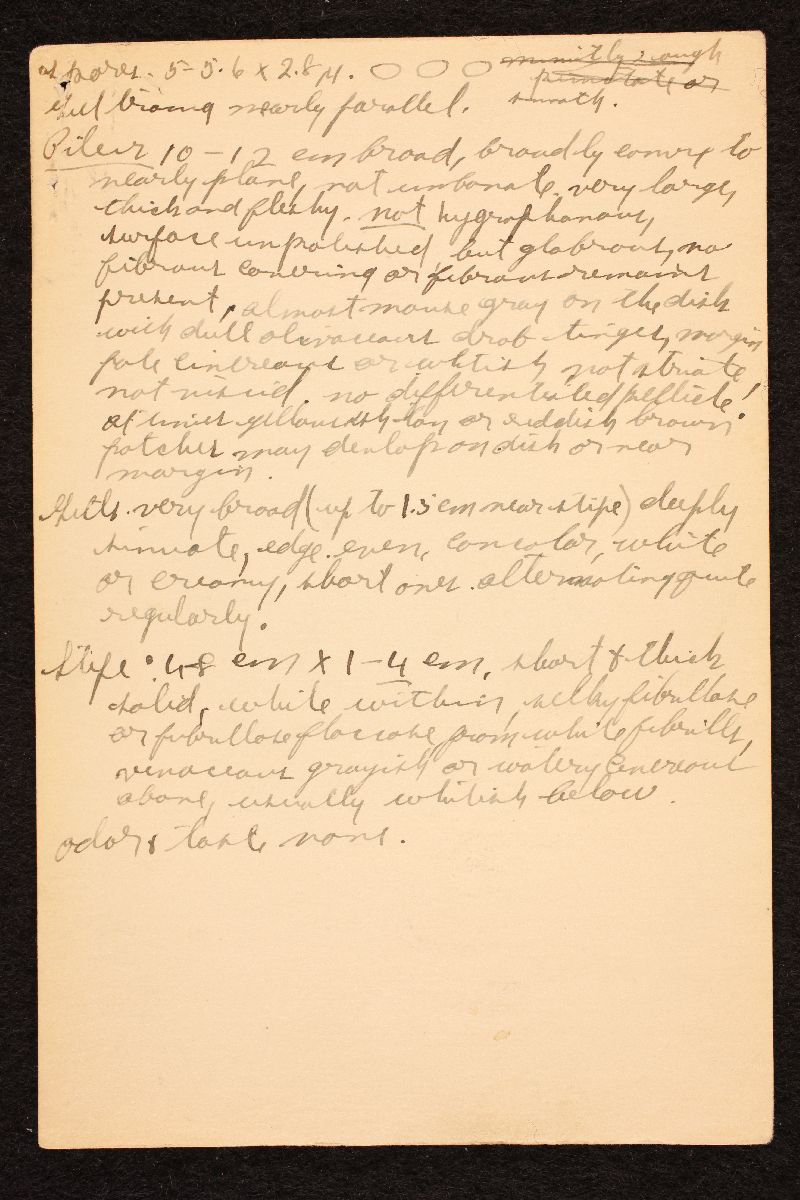 spores. 5-5.6 x 2.8 µ. minutely rough
punctate or
smooth.
Gill trama nearly parallel.
Pileus 10-12 cm broad, broadly convex to
nearly plane, not umbonate, very large,
thick and fleshy. not hygrophanous,
surface unpolished, but glabrous, no
fibrous covering or fibrous remains
present, almost mouse gray on the disk
with dull olivaceous drab tinges, margin
pale cinereous or whitish, not striate
not viscid, no differentiated pellicle!
at times yellowish-tan or reddish brown
patches may develop on disk or near
margin.
Gills. very broad (up to 1.5 cm near stipe) deeply
sinuate, edge even, concolor, white
or creamy, short ones alternating quite
regularly.
Stipe: 4-8 cm x 1-4 cm, short & thick
solid, white within, silky fibrillose
or fibrillose floccose from white fibrills,
vinaceous grayish or watery cinereous
above, usually whitish below.
odor & taste none.